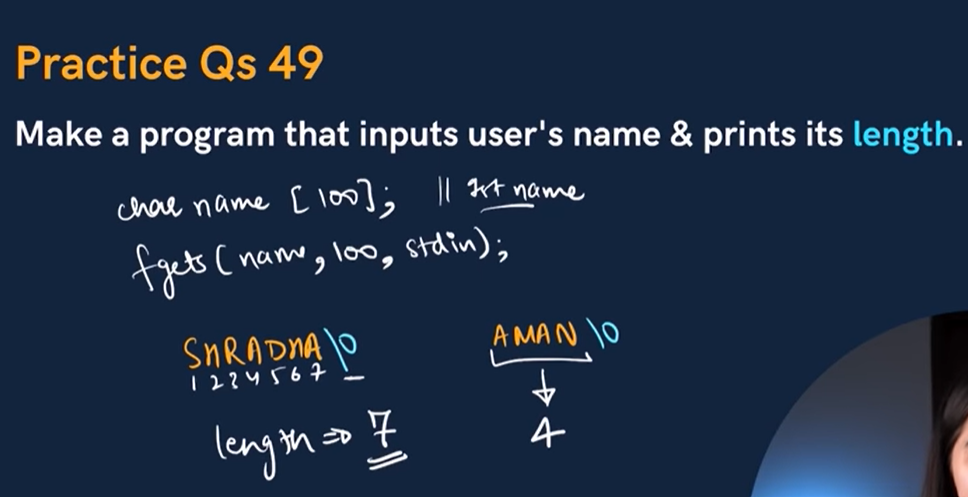 Practice Qs 49
Make a program that inputs user's name & prints its length.
char name [100]; || 1st name
fgets(name, 100, stdin);
SHRADHA\0 AMAN\0
1 2 3 4 5 6 7
length => 7 4